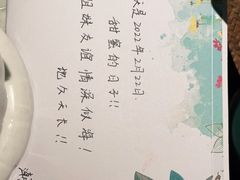 天是2022年2月22日
甜蜜的日子!!
姐妹友谊情深似海!
地久天长!!